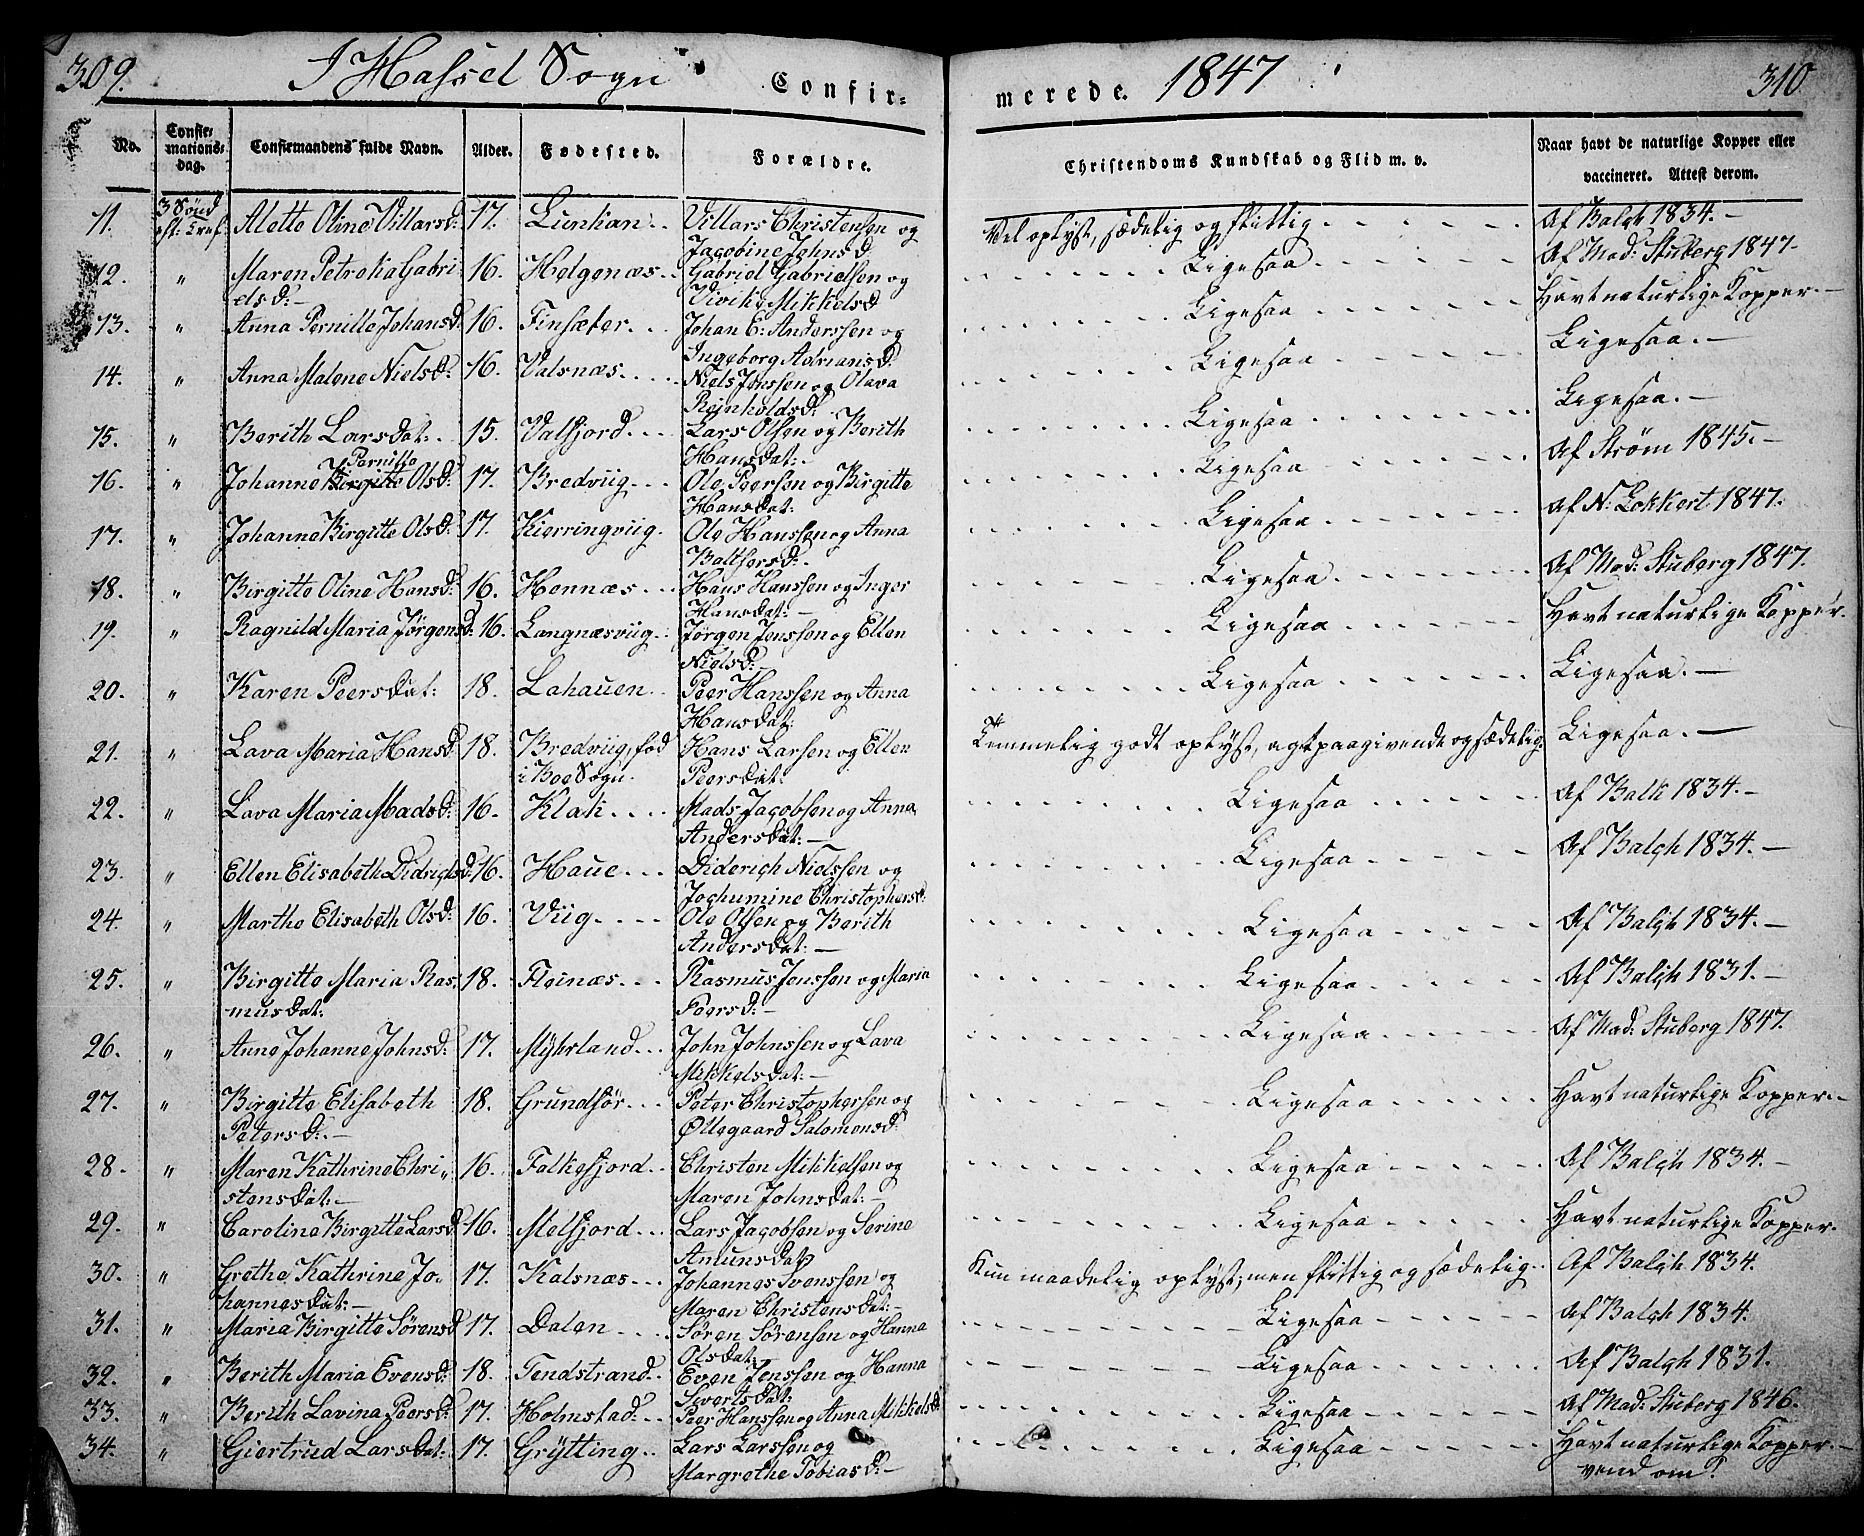 309. I Hassel Sogn Confir-
merede. 1847 310
No. Confir-mations-dag. Confirmandens fulde Navn. Alder. Fødested. Forældre. Christendoms Kundskab og Flid m. v. Naar havt de naturlige Kopper eller vaccineret. Attest derom.
11. 3 Sønd Alette Oline Villarsd: 17. Villars Christensen og Vel oplyst, sædelig og flittig Af Balch 1834.-
Jacobine Johnsd.
12. " Maren Petrika Gabri 16. Helgenæs Gabriel Gabrielsen og Ligesaa Af Mad: Stuberg 1847-
elsd:- Mikkelsd
13. " Anna Pernille Johansd: 16. Finsæter Johan C: Anderssen og Ligesaa Havt naturlige Kopper.-
Ingeborg Adriansd:
14. " Anna Malene Nielsd: 16. Valsnæs Niels Jenssen og Olava Ligesaa Ligesaa.-
Reinholdsd:
15. " Berith Larsdat: 15. Valfjord Lars Olsen og Berith Ligesaa Ligesaa.-
Hansdat:
Pernille
16. " Johanne Birgitte Olsd: 17. Bredviig Ole Peersen og Birgitte Ligesaa Af Strøm 1845.-
Hansdat:
17. " Johanne Birgitte Olsd: 17. Kierringviig. Ole Hanssen og Anna Ligesaa Af N: Lokkert 1847.
Baltsersd:
18. " Birgitte Oline Hansd: 16. Hennæs Hans Hanssen og Inger Ligesaa Af Mad: Stuberg 1847.
Hansdat:-
19. " Ragnild Maria Jørgensd: 16. Langnæsviig Jørgen Jenssen og Ellen Ligesaa Havt naturlige Kopper.
Nielsd:-
20. " Karen Peersdat: 18. Lahauen Peer Hanssen og Anna Ligesaa Ligesaa.-
Hansdat:
21. " Lava Maria Hansd: 18. Bredviig, fød Hans Larsen og Ellen Temmelig godt oplyst, agtpaagivende og sædelig Ligesaa.-
i Boe Sogn. Peersdat:
22. " Lava Maria Madsd: 16. Klak Mads Jacobsen og Anna Ligesaa Af Balk 1834.-
Andersdat:-
23. " Ellen Elisabeth Didrichsd: 16. Haue Diderich Nielssen og Ligesaa Af Balch 1834.-
Jochumine Christophersd:
24. " Marthe Elisabeth Olsd: 16. Viig Ole Olsen og Berith Ligesaa Af Balch 1834.-
Andersdat:-
25. " Birgitte Maria Ras 18. Fleinæs Rasmus Jenssen og Maria Ligesaa Af Balch 1831.-
musdat: Peersd:-
26. " Anne Johanne Johnsd: 17. Myhrland John Johnssen og Lava Ligesaa Af Mad: Stuberg 1847.
Mikkelsdat:-
27. " Birgitte Elisabeth 18. Grundfør Peter Christophersen og Ligesaa Havt naturlige Kopper.-
Petersd:- Øllegaard Salomonsd:
28. " Maren Kathrine Chri 16. Falkefjord Christen Mikkelsen og Ligesaa Af Balch 1834.-
stensdat:- Maren Johnsdat:-
29. " Caroline Birgitte Larsd: 16. Melfjord Lars Jacobsen og Serine Ligesaa Havt naturlige Kopper.
Amunsdat:
30. " Grethe Kathrine Jo 17. Kalsnæs Johannes Svenssen og Kun maadelig oplyst, men flittig og sædelig Af Balch 1834.
hannesdat:- Maren Christensdat:-
31. " Maria Birgitte Sørensd 17. Dalen Søren Sørensen og Hanna Ligesaa Af Balch 1834.
Olsdat:-
32. " Berith Maria Evensd: 18. Tendstrand Even Jenssen og Hanna Ligesaa Af Balch 1831.
Sivertsdat:
33. " Berith Lavina Peersd: 17. Holmstad Peer Hanssen og Anna Mikkelsd: Ligesaa Af Mad: Stuberg 1846.
34. " Giertrud Larsdat: 17. Grytting Lars Larssen og Ligesaa Havt naturlige Kopper.-
Margrethe Tobiasd:- vend om!